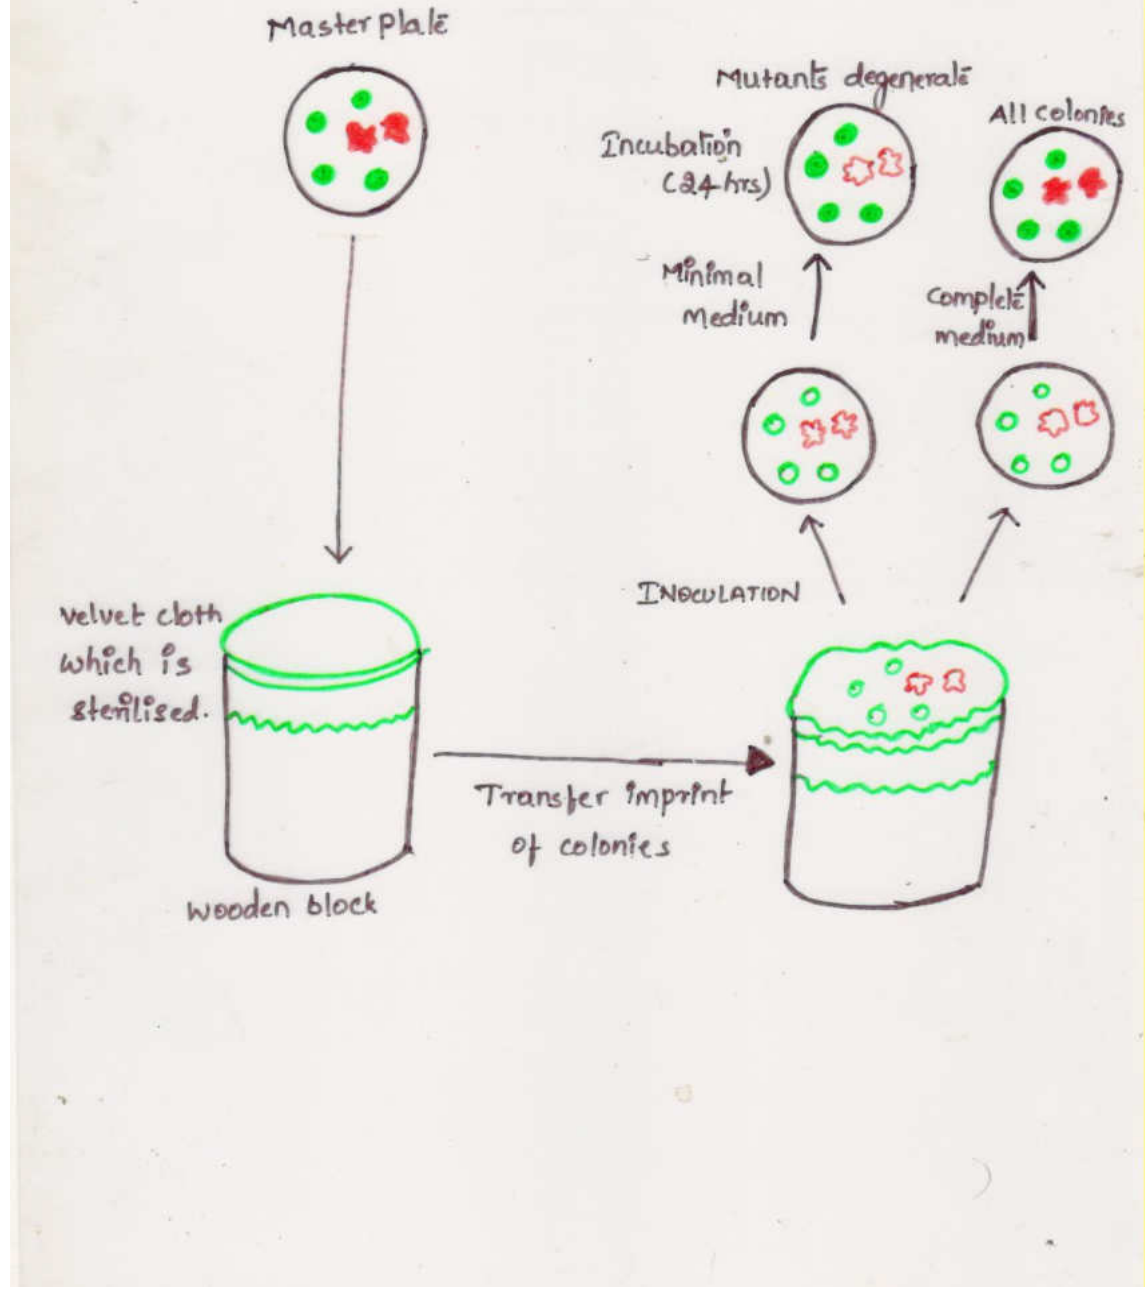 Master Plate
Mutants degenerate
All colonies
Incubation
(24 hrs)
Minimal
Medium
Complete
medium
INOCULATION
velvet cloth
which is
sterilised.
Transfer imprint
of colonies
wooden block